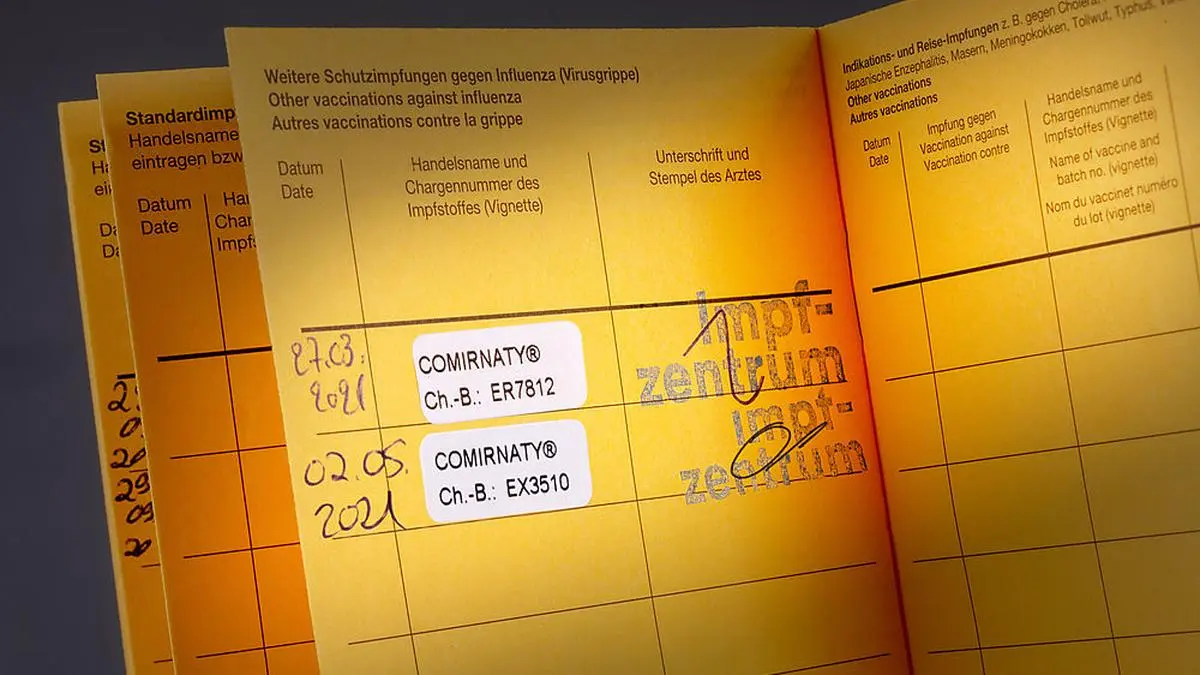 Standardimp
Handelsname
eintragen bzw
Datum
Date
Weitere Schutzimpfungen gegen Influenza (Virusgrippe)
Other vaccinations against influenza
Autres vaccinations contre la grippe
Datum
Date
Handelsname und
Chargennummer des
Impfstoffes (Vignette)
Unterschrift und
Stempel des Arztes
27.03.
2021
COMIRNATY®
Ch.-B.: ER7812
Impf-
zentrum
02.05.
2021
COMIRNATY®
Ch.-B.: EX3510
Impf-
zentrum
Indikations- und Reise-Impfungen z. B. gegen Cholera,
Japanische Enzephalitis, Masern, Meningokokken, Tollwut, Typhus,
Other vaccinations
Autres vaccinations
Datum
Date
Impfung gegen
Vaccination against
Vaccination contre
Handelsname und
Chargennummer des
Impfstoffes (Vignette)
Name of vaccine and
batch no. (vignette)
Nom du vaccinet numéro
du lot (vignette)